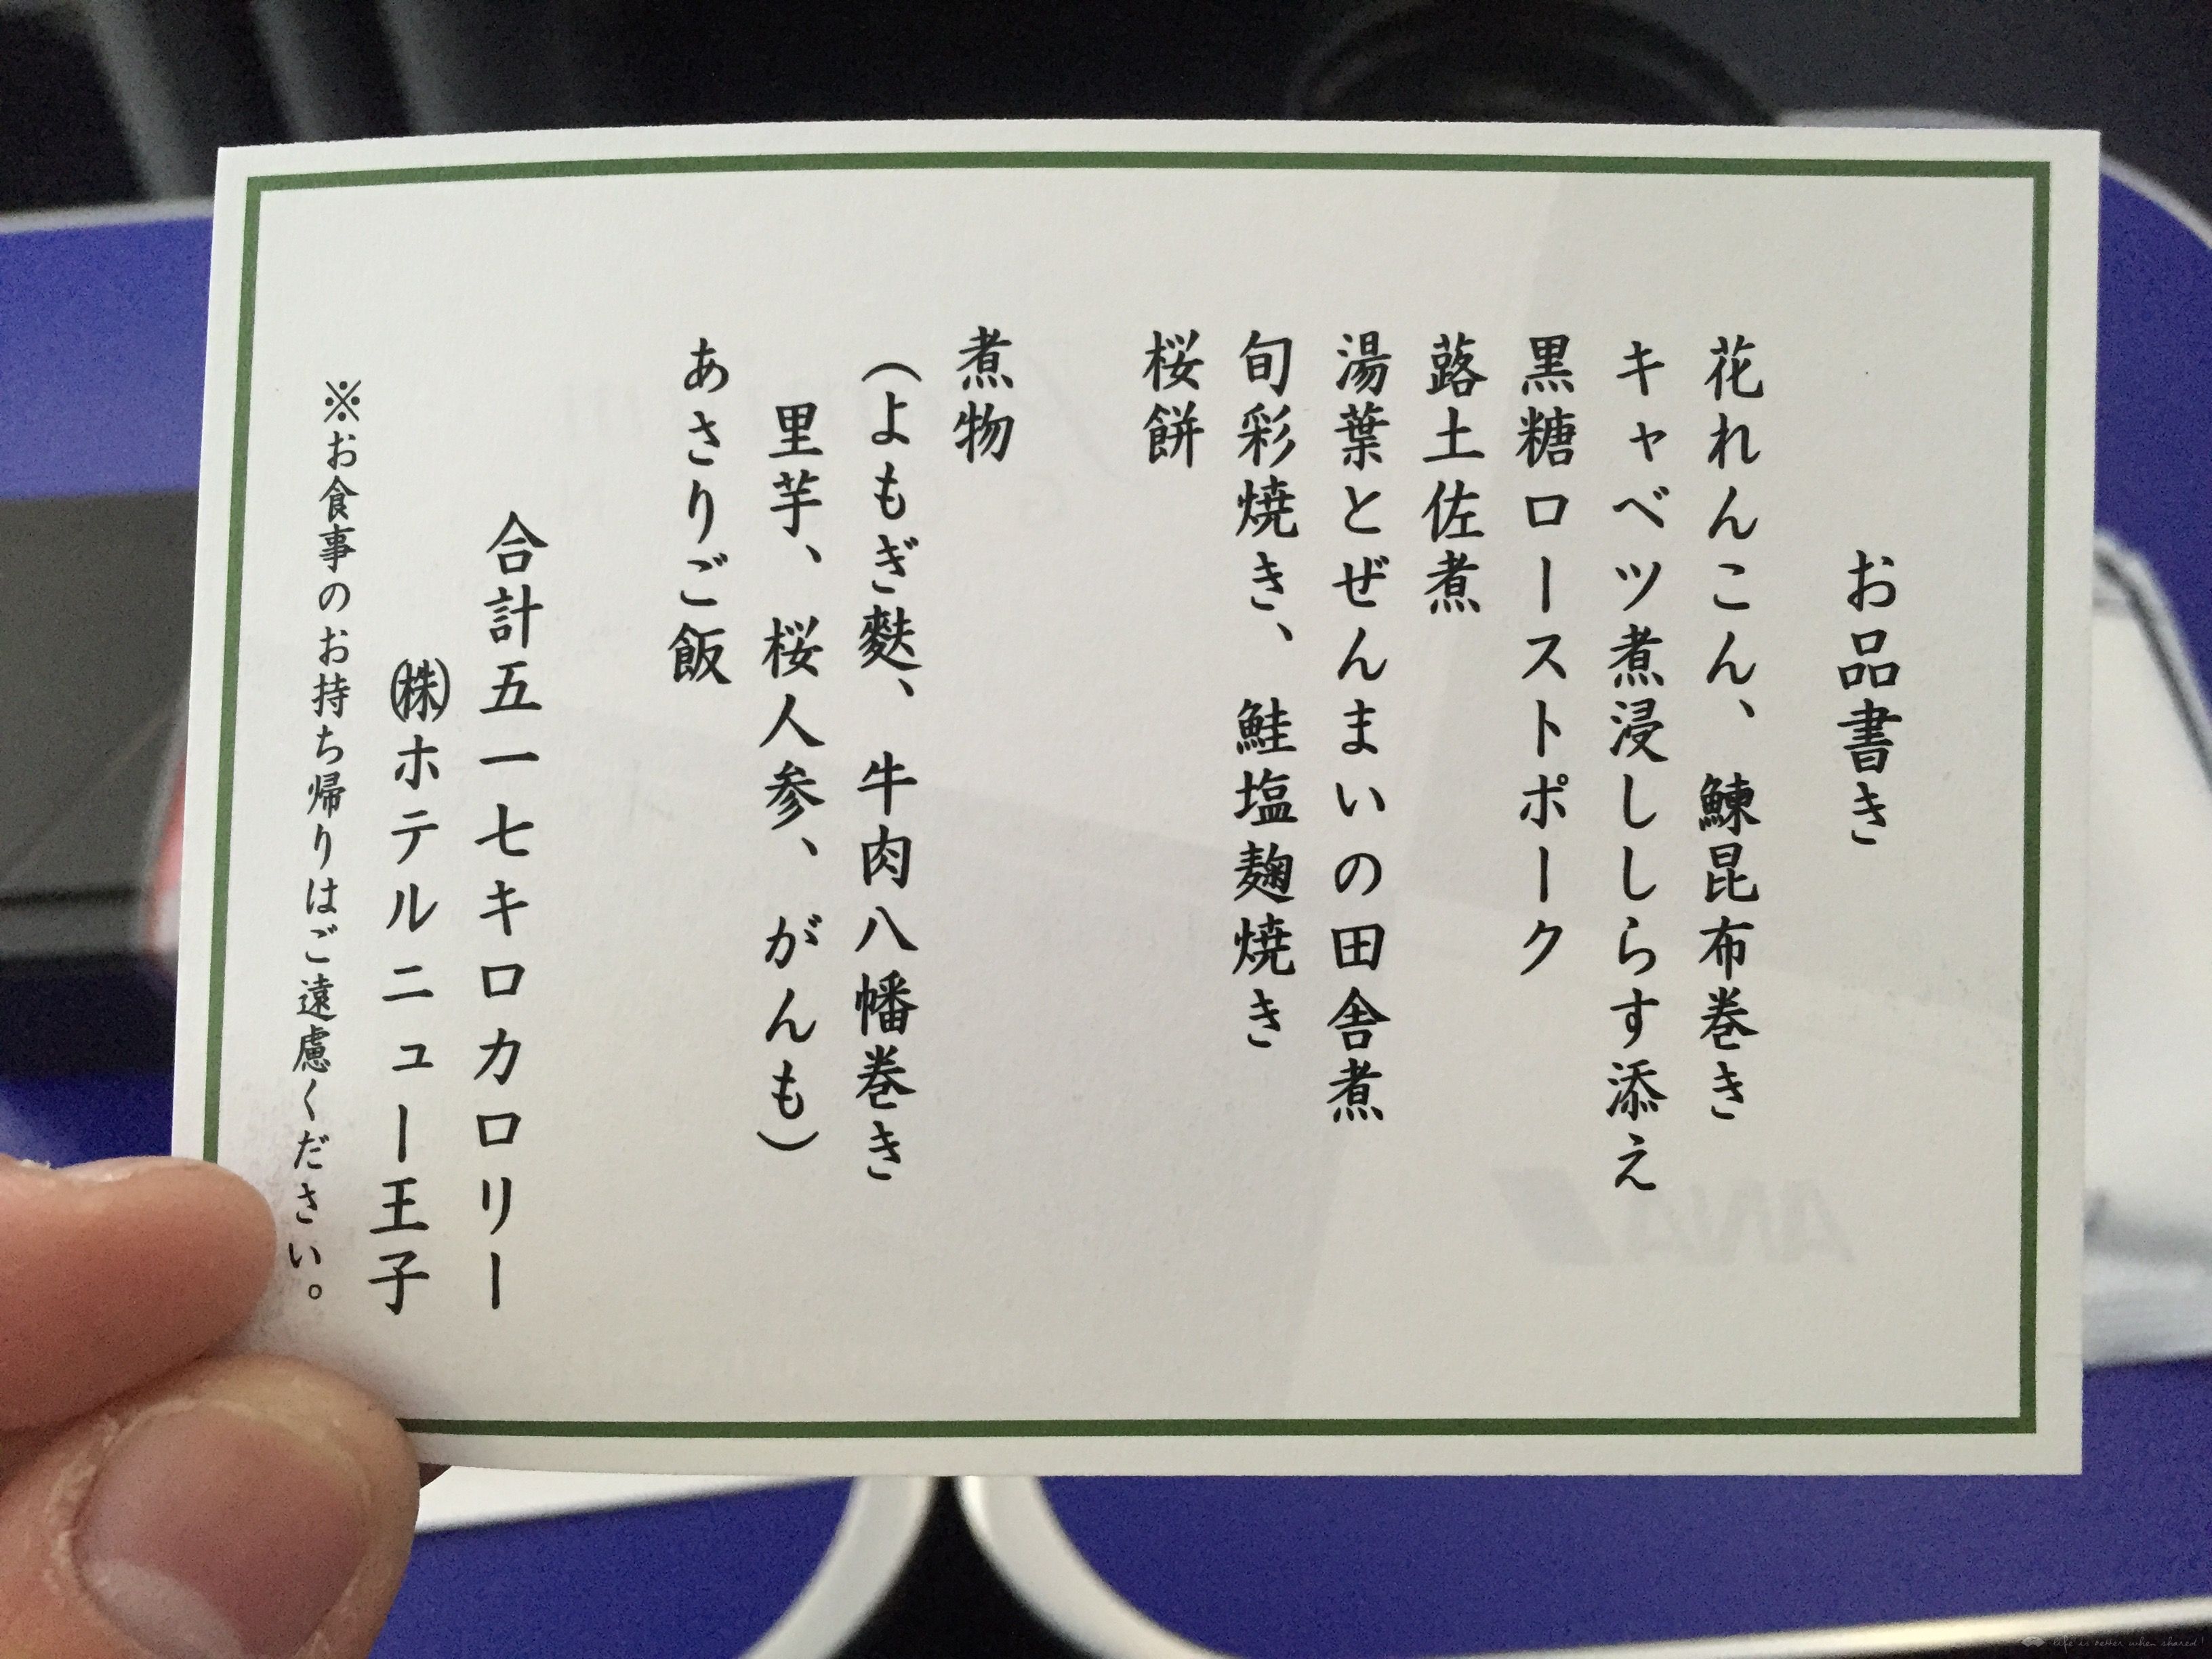 お品書き
花れんこん、鰊昆布巻き
キャベツ煮浸ししらす添え
黒糖ローストポーク
蕗土佐煮
湯葉とぜんまいの田舎煮
旬彩焼き、鮭塩麹焼き
桜餅
煮物
（よもぎ麩、牛肉八幡巻き
里芋、桜人参、がんも）
あさりご飯
合計五一七キロカロリー
㈱ホテルニュー王子
※お食事のお持ち帰りはご遠慮ください。
ANA
life is better when shared!